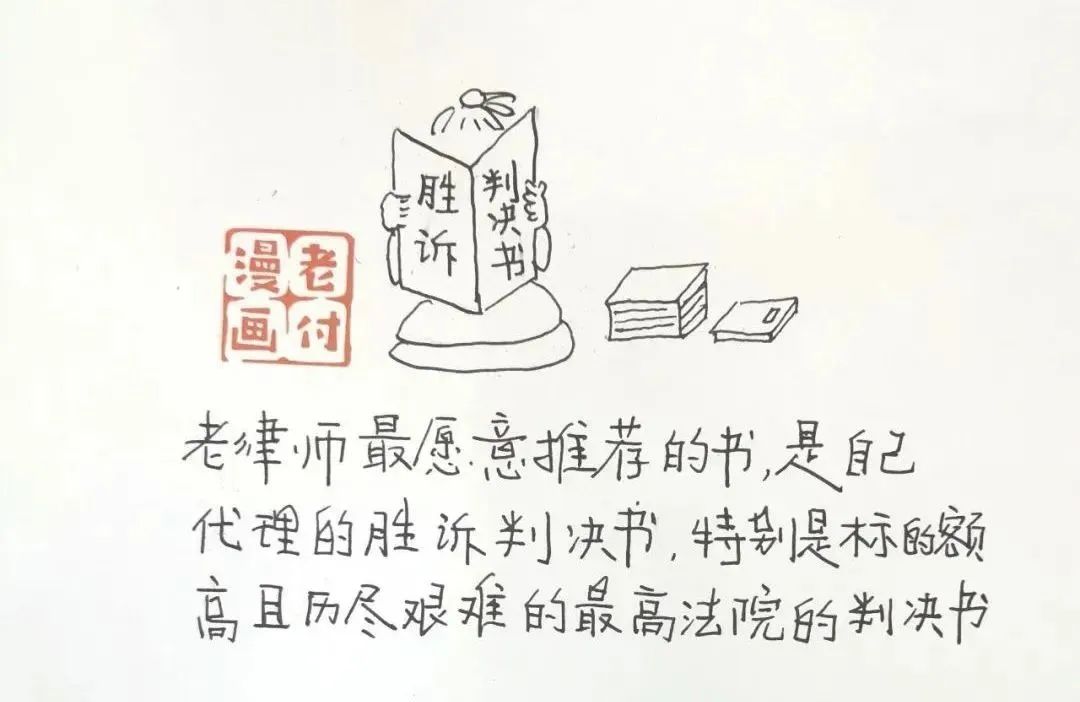 胜诉
判决书
老付
漫画
老律师最愿意推荐的书,是自己
代理的胜诉判决书,特别是标的额
高且历尽艰难的最高法院的判决书